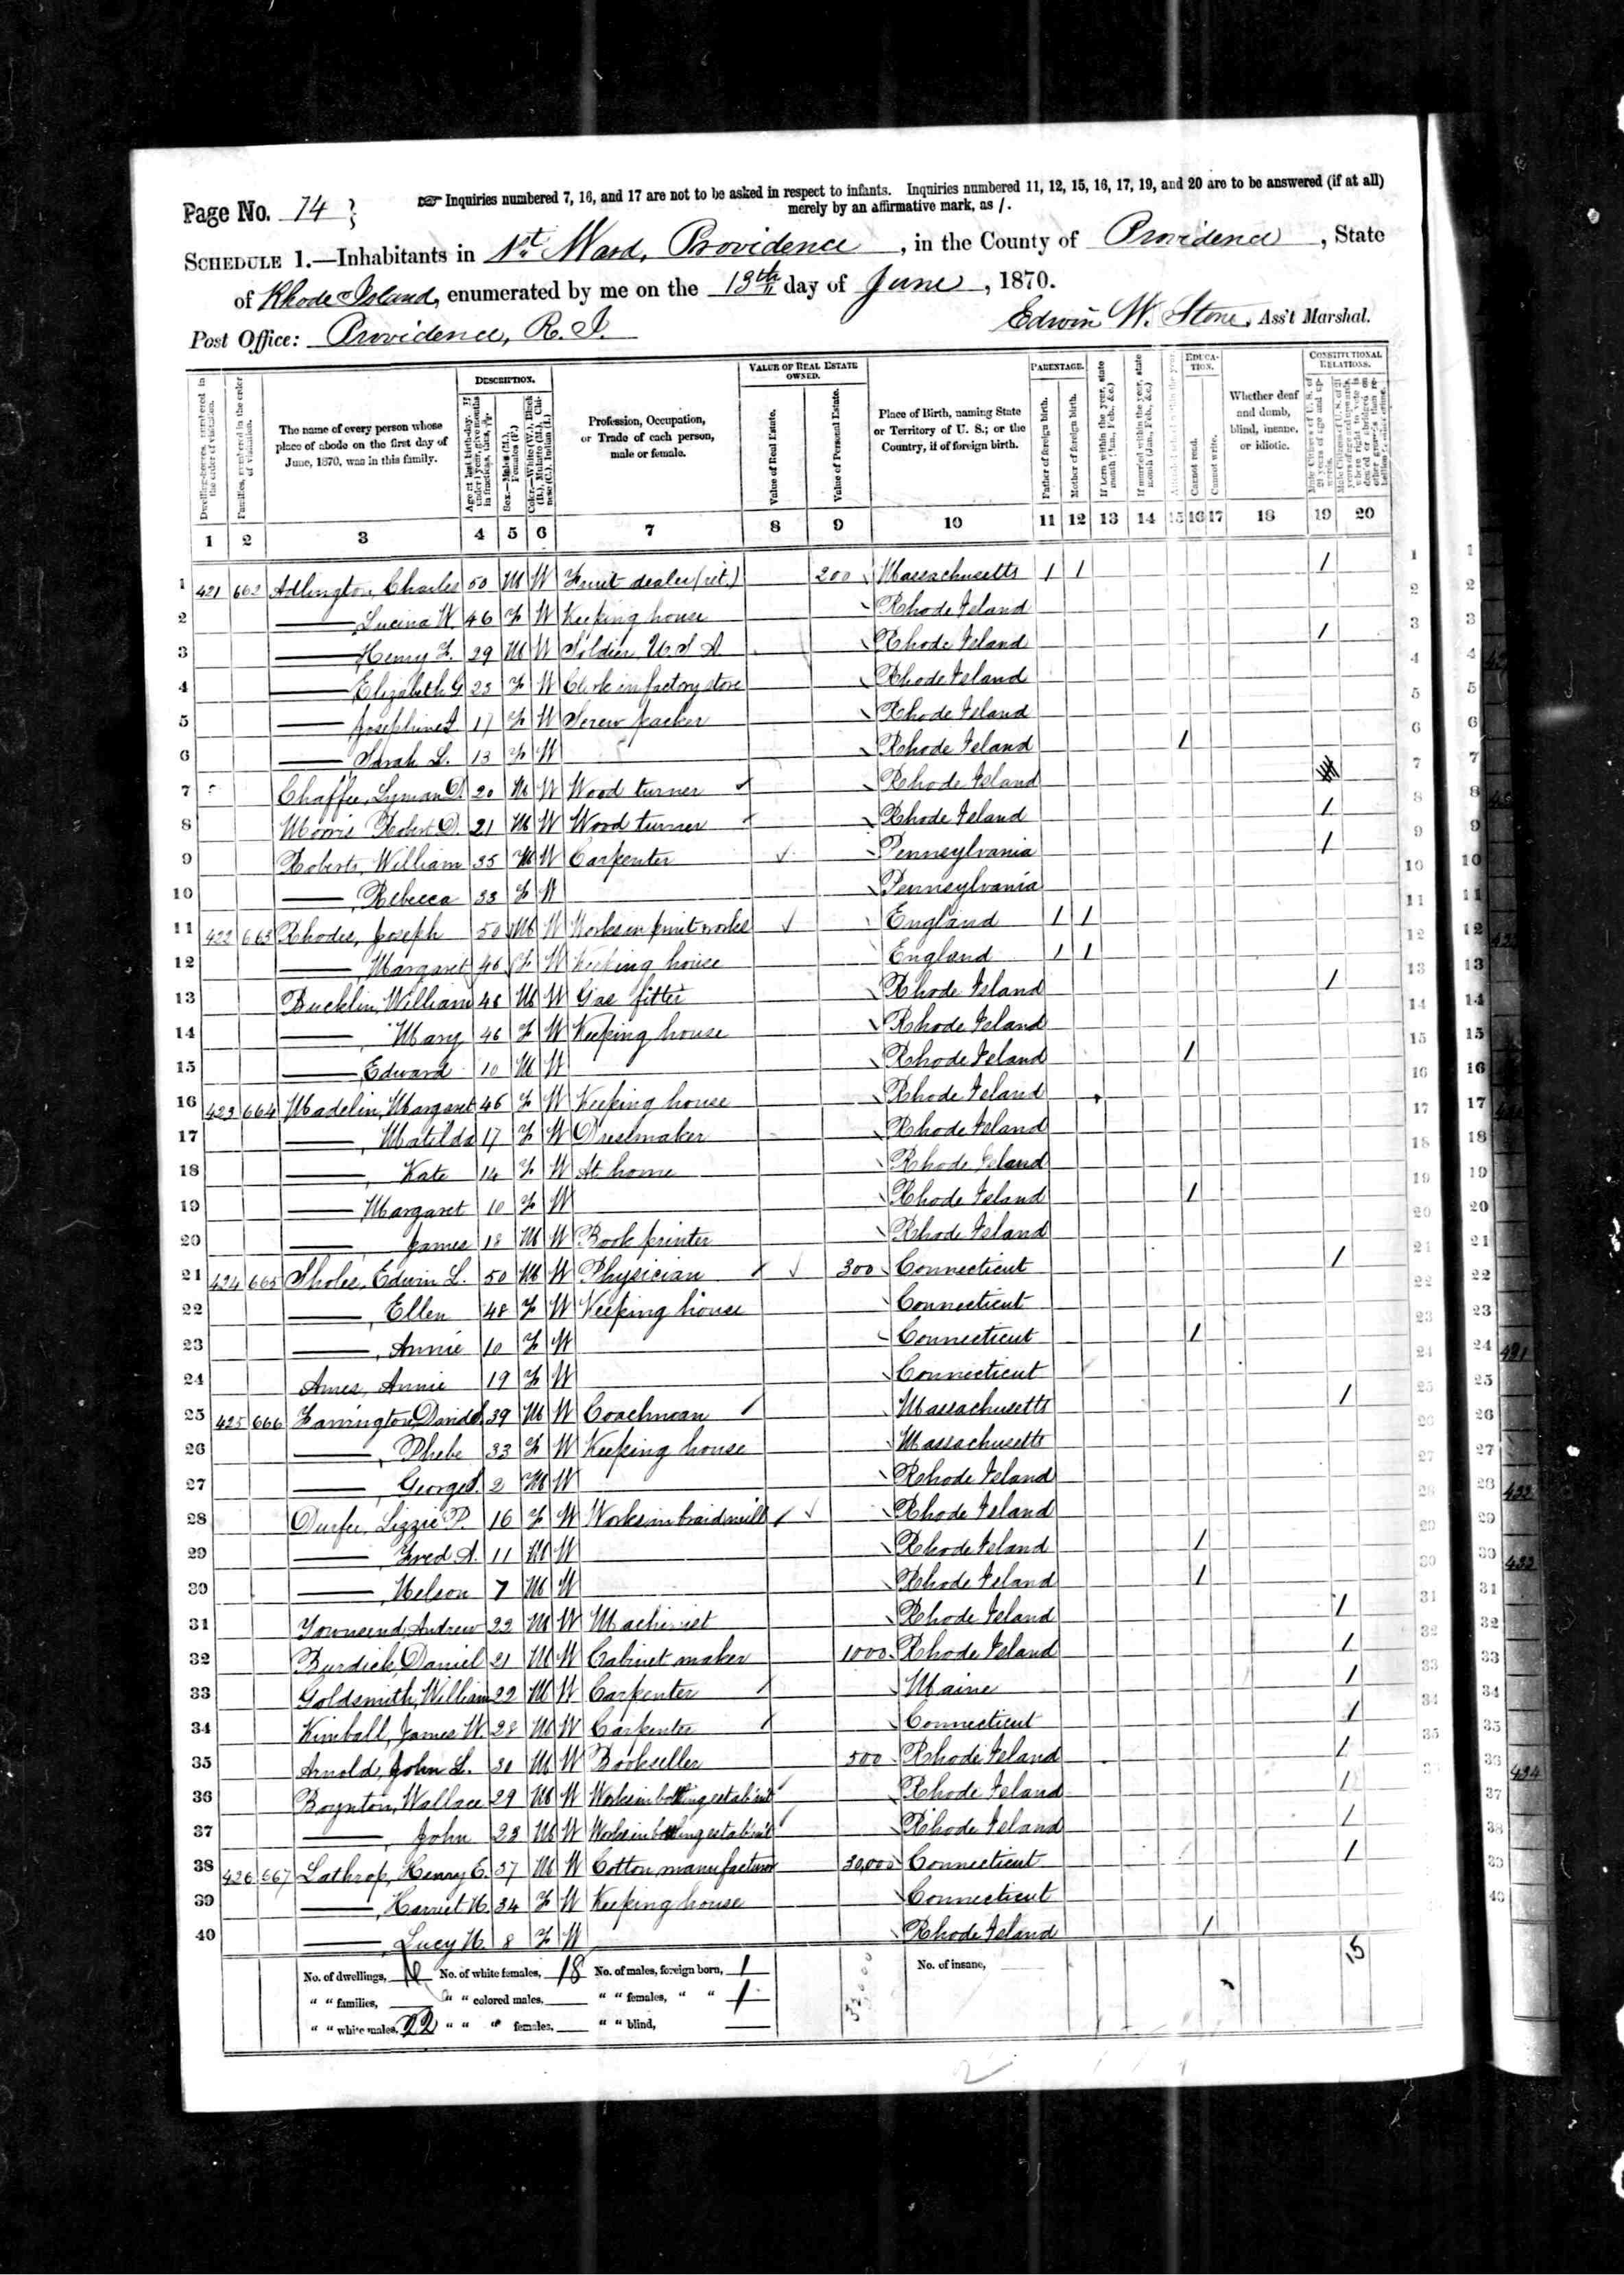 Page No. 74
Inquiries numbered 7, 16, and 17 are not to be asked in respect to infants. Inquiries numbered 11, 12, 15, 16, 17, 19, and 20 are to be answered (if at all)
merely by an affirmative mark, as /.
SCHEDULE 1.—Inhabitants in 1st Ward, Providence, in the County of Providence, State
of Rhode Island, enumerated by me on the 13th day of June, 1870.
Post Office: Providence, R. I.
Edwin W. Stone, Ass't Marshal.
Dwelling-houses, numbered in the order of visitation.
Families, numbered in the order of visitation.
The name of every person whose place of abode on the first day of June, 1870, was in this family.
DESCRIPTION.
Age at last birth-day. If under 1 year, give months in fractions, thus,
Sex.—Males (M.), Females (F.)
Color.—White (W.), Black (B.), Mulatto (M.), Chinese (C.), Indian (I.)
Profession, Occupation, or Trade of each person, male or female.
VALUE OF REAL ESTATE OWNED.
Value of Real Estate.
Value of Personal Estate.
Place of Birth, naming State or Territory of U. S.; or the Country, if of foreign birth.
PARENTAGE.
Father of foreign birth.
Mother of foreign birth.
If born within the year, state month (Jan., Feb., &c.)
If married within the year, state month (Jan., Feb., &c.)
EDUCATION.
Cannot read.
Cannot write.
Whether deaf and dumb, blind, insane, or idiotic.
CONSTITUTIONAL RELATIONS.
1 2 3 4 5 6 7 8 9 10 11 12 13 14 15 16 17 18 19 20
1 421 662 Adlington, Charles 50 M W Fruit dealer (ret.) 200 Massachusetts / / / 1
2 —— Lucina W. 46 F W Keeping house Rhode Island 2
3 —— Henry F. 29 M W Soldier U S A Rhode Island / 3
4 —— Elizabeth G 25 F W Clerk in factory store Rhode Island 4
5 —— Josephine A. 17 F W Screw packer Rhode Island 5
6 —— Sarah L. 13 F W Rhode Island / 6
7 Chaffee, Lyman D. 20 M W Wood turner Rhode Island 7
8 Morris Robert D. 21 M W Wood turner Rhode Island / 8
9 Roberts, William 35 M W Carpenter Pennsylvania / 9
10 ——, Rebecca 33 F W Pennsylvania 10
11 422 663 Rhodes, Joseph 50 M W Works in print works England / / 11
12 —— Margaret 46 F W Keeping house England / / 12
13 Bucklin, William 48 M W Gas fitter Rhode Island / 13
14 ——, Mary 46 F W Keeping house Rhode Island 14
15 ——, Edward 10 M W Rhode Island / 15
16 423 664 Madelin, Margaret 46 F W Keeping house Rhode Island 16
17 ——, Matilda 17 F W Dressmaker Rhode Island 17
18 ——, Kate 14 F W At home Rhode Island 18
19 —— Margaret 10 F W Rhode Island / 19
20 ——, James 18 M W Book printer Rhode Island 20
21 424 665 Sholes, Edwin L. 50 M W Physician 300 Connecticut / 21
22 ——, Ellen 48 F W Keeping house Connecticut 22
23 ——, Annie 10 F W Connecticut / 23
24 Ames, Annie 19 F W Connecticut 24
25 425 666 Farrington, David 39 M W Coachman Massachusetts / 25
26 ——, Phebe 33 F W Keeping house Massachusetts 26
27 ——, George 2 M W Rhode Island 27
28 Durfee, Lizzie P. 16 F W Works in braid mill Rhode Island 28
29 ——, Fred A. 11 M W Rhode Island / 29
30 ——, Nelson 7 M W Rhode Island / 30
31 Townsend, Andrew 22 M W Machinist Rhode Island / 31
32 Burdick, Daniel 21 M W Cabinet maker 1000 Rhode Island / 32
33 Goldsmith, William 22 M W Carpenter Maine / 33
34 Kimball, James W. 28 M W Carpenter Connecticut / 34
35 Arnold, John L. 30 M W Bookseller 500 Rhode Island / 35
36 Boynton, Wallace 29 M W Works in bottling establ'mt Rhode Island / 36
37 ——, John 23 M W Works in bottling establ'mt Rhode Island / 37
38 426 667 Lathrop, Henry E. 37 M W Cotton manufacturer 30,000 Connecticut / 38
39 ——, Harriet N. 34 F W Keeping house Connecticut 39
40 ——, Lucy N. 8 F W Rhode Island / 40
No. of dwellings, No. of white females, 18 No. of males, foreign born, 1 No. of insane, 15
" " families, " " colored males, " " females, " " 1
" " white males, 22 " " " females, " " blind,